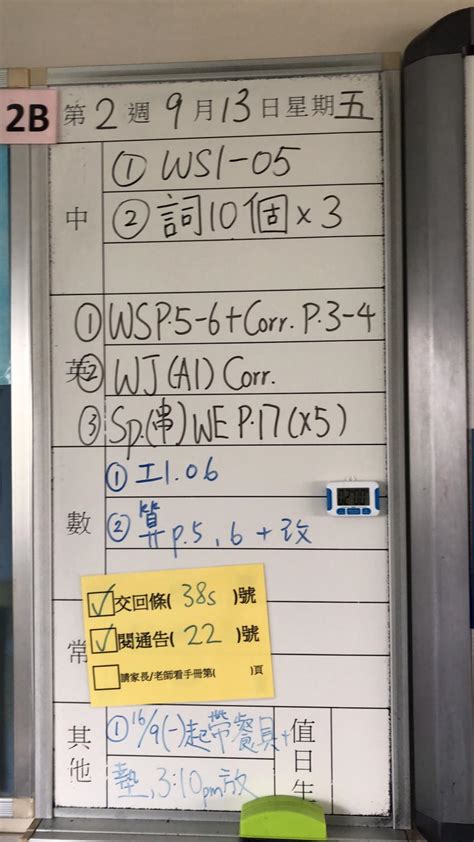 2B
第2週9月13日星期五
中
① WS1-05
② 詞10個x3
英
① WSP.5-6+Corr. P.3-4
② WJ(A1) Corr.
③ Sp.(串)WE P.17(x5)
數
① 工1.06
② 算p.5,6+改
常
✓交回條( 38s )號
✓閱通告( 22 )號
請家長/老師看手冊第( )頁
其他
①16/9(一)起帶餐具+
墊,3:10pm放
值日生